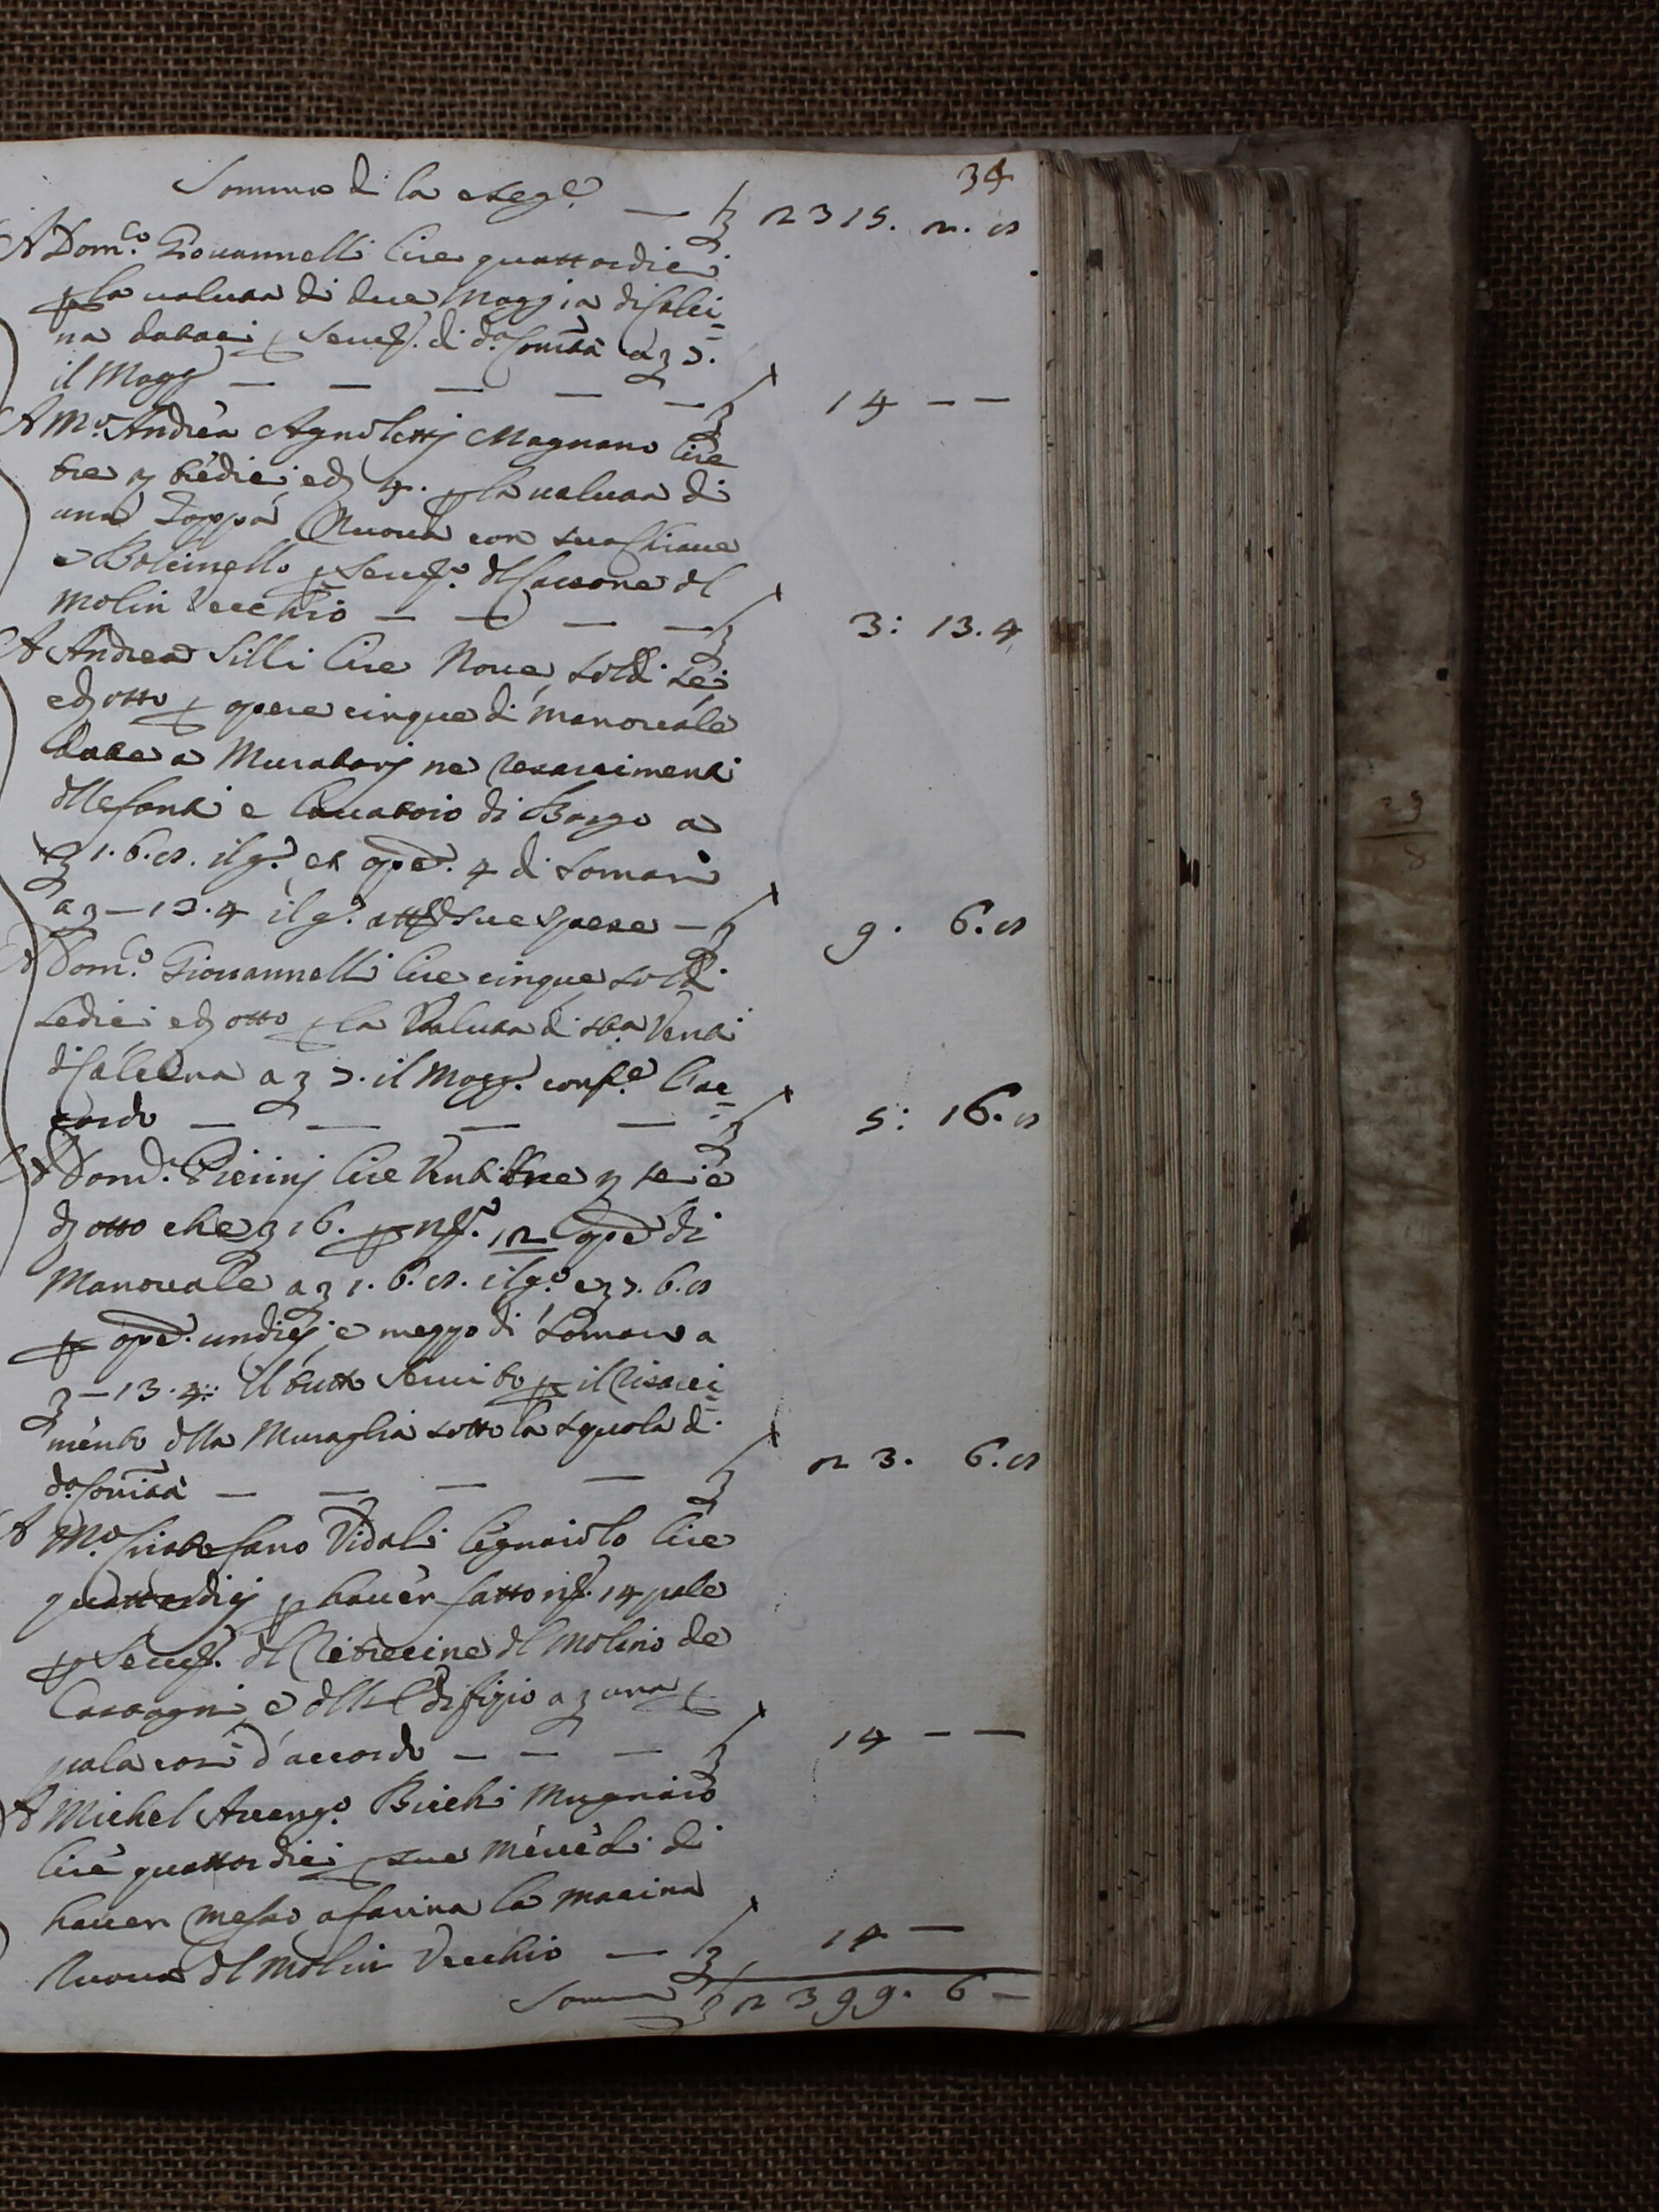 34
Somma di la Seg.e — £ 2315. 2. 8
A Dom.co Giovannelli lire quattordici
p la valuta di due Moggia di Calci=
na dataci p servig.o di d.a Comità a £ 7.
il Mogg.o — — — — — £ 14 — —
A M.o Andrea Agnoletti Magnano lire
tre s tredici e d 4. p la valuta di
una Toppa Nuova con sua Chiave
e Bolcinello p servig.o dl Cassone dl
Molin Vecchio — — — — £ 3: 13. 4
A Andrea Silli lire Nove, soldi sei
e d otto p opere cinque di manovale
date a Muratori ne resarcimenti
dlle fonti e lavatoio di Borgo a
£ 1. 6. 8. il g.o et ope.e 4 di somaro
a £ — 13. 4 il g.o a tt.e sue spese — £ 9. 6. 8
A Dom.co Giovannelli lire cinque soldi
sedici e d otto p la Valuta di sta Venti
di Calcina a £ 7. il Mogg.o conf.e l'ac=
cordo — — — — £ 5: 16. 8
A Dom.co Pierini lire Ventitre s sei e
d otto che £ 16. p n.o 12 ope.e di
Manovale a £ 1. 6. 8. il g.o e £ 7. 6. 8
p ope.e undici e mezzo di somaro a
£ — 13. 4: Il tutto servito p il risarci=
mento dlla Muraglia sotto la squola di
d.a Comità — — — — £ 23. 6. 8
A M.o Cristofano Vidali legnaiolo lire
quattordici p haver fatto n.o 14 pale
p servig.o dl Ritrecine dl Molino de
Castagni e dll'Edifizio a £ una p
pala così d'accordo — — — £ 14 — —
A Michel Arcang.o Bicchi Mugnaio
lire quattordici p sue mercedi di
haver messo a farina la macina
Nuova dl Molin Vecchio — £ 14 —
Somma £ 2399. 6 —